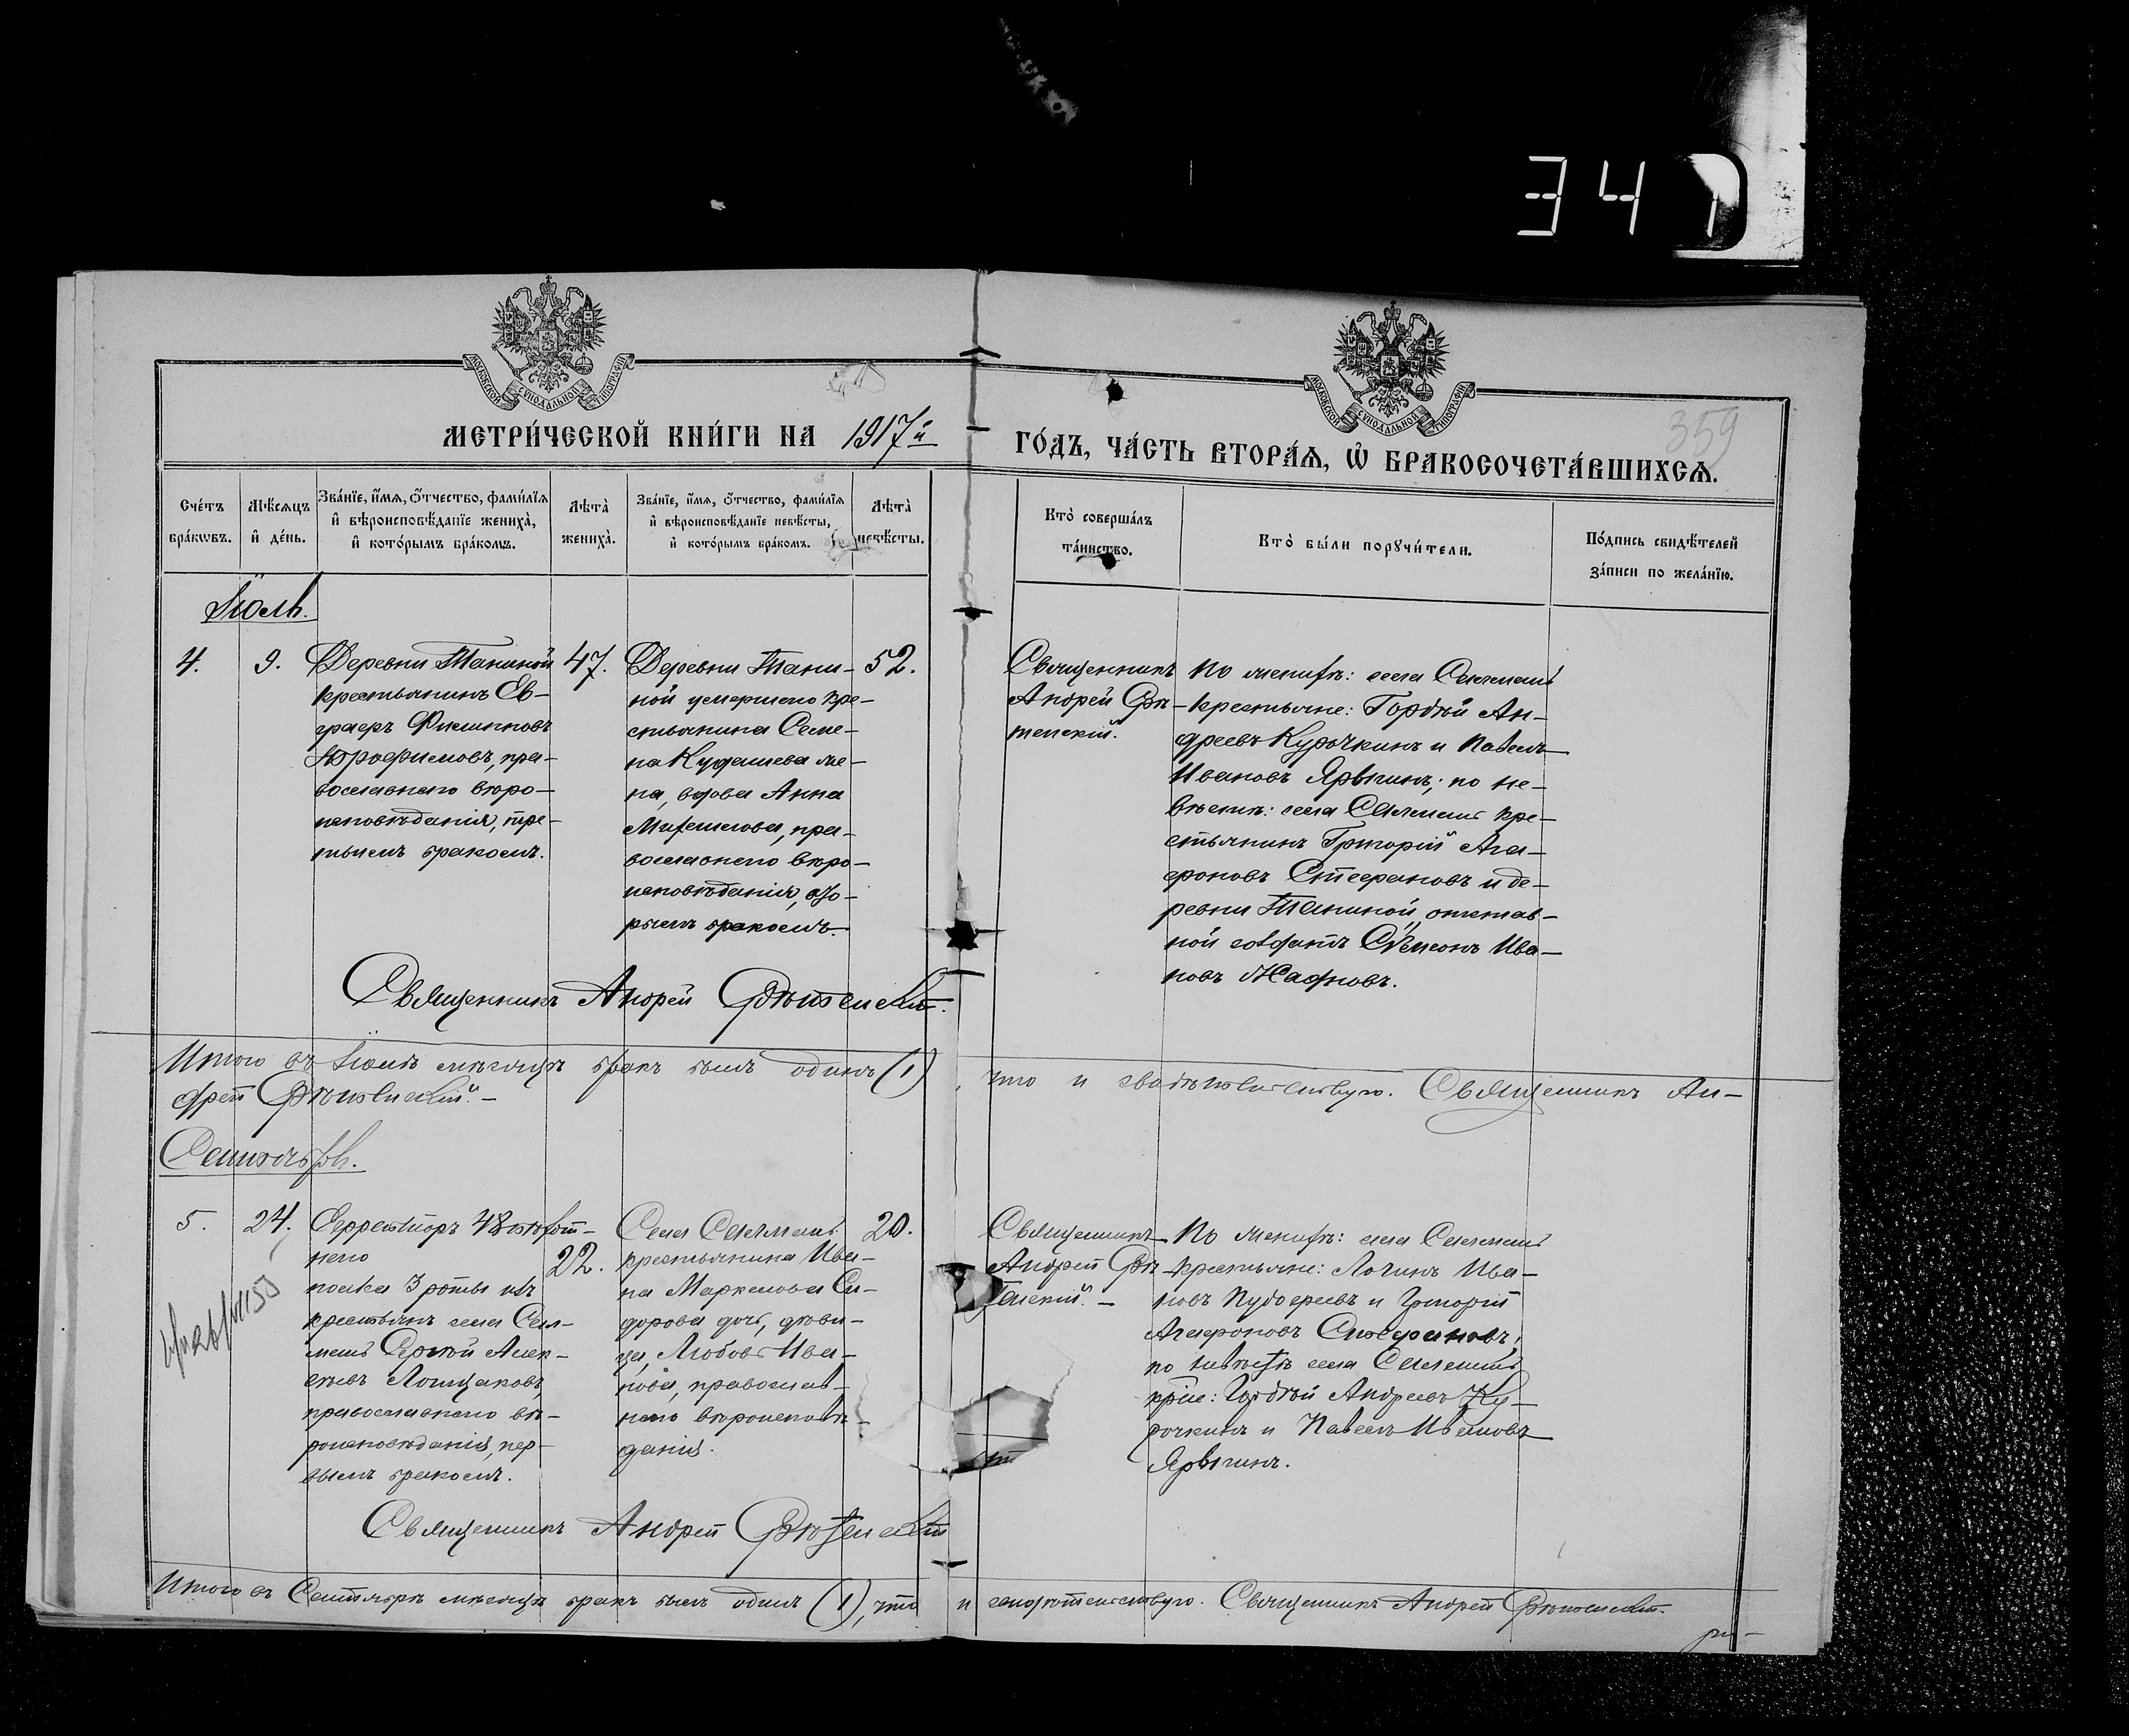 341
МОСКОВСКОЙ СѴНОДАЛЬНОЙ ТИПОГРАФІИ
МОСКОВСКОЙ СѴНОДАЛЬНОЙ ТИПОГРАФІИ
359
МЕТРИ́ЧЕСКОЙ КНИ́ГИ НА 1917й ГО́ДЪ, ЧА́СТЬ ВТОРА́Ѧ, Ѡ҆ БРАКОСОЧЕТА́ВШИХСѦ.
Сче́тъ бра́кѡвъ.
Мѣ́сѧцъ и҆ де́нь.
Зва́нїе, и҆́мѧ, ѻ҆́тчество, фами́лїѧ и҆ вѣроисповѣ́данїе жениха̀, и҆ кото́рымъ бра́комъ.
Лѣта̀ жениха̀.
Зва́нїе, и҆́мѧ, ѻ҆́тчество, фами́лїѧ и҆ вѣроисповѣ́данїе невѣ́сты, и҆ кото́рымъ бра́комъ.
Лѣта̀ невѣ́сты.
Кто̀ соверша́лъ та́инство.
Кто̀ бы́ли порꙋчи́тели.
По́дпись свидѣ́телей за́писи по жела́нїю.
Іюль.
4.
9.
Деревни Таниной
крестьянинъ Ев-
графъ Филипповъ
православнаго вѣро-
исповѣданія, тре-
тьимъ бракомъ.
47.
Деревни Тани-
ной умершаго кре-
стьянина Семе-
на Кудашева же-
на, вдова Анна
пра-
вославнаго вѣро-
исповѣданія, вто-
рымъ бракомъ.
52.
Священникъ
Андрей Срѣ-
тенскій.
По женихѣ: села
крестьяне: Гордѣй Ан-
дреевъ Курочкинъ и Павелъ
Ивановъ Ярыгинъ; по не-
вѣстѣ: села кре-
стьянинъ Григорій Ага-
фоновъ Стефановъ и де-
ревни Таниной, отстав-
ной солдатъ Семенъ Ива-
новъ
Священникъ Андрей Срѣтенскій.
Итого въ Іюлѣ мѣсяцѣ бракъ былъ одинъ (1), что и свидѣтельствую. Священникъ Ан-
дрей Срѣтенскій.-
Сентябрь.
5.
24.
полка 3 роты изъ
крестьянъ села Сал-
Алек-
сѣевъ Лощаковъ,
православнаго вѣ-
роисповѣданія, пер-
вымъ бракомъ.
22.
Села
крестьянина Ива-
на Маркелова Си-
дорова дочь, дѣви-
ца, Любовь Ива-
нова, православ-
наго вѣроисповѣ-
данія.
20.
Священникъ
Андрей Срѣ-
тенскій.-
По женихѣ: села
крестьяне: Ива-
новъ и Григорій
Агафоновъ Стефановъ;
по невѣстѣ села
Гордѣй Андреевъ Ку-
рочкинъ и Павелъ Ивановъ
Ярыгинъ.
Священникъ Андрей Срѣтенскій
Итого въ Сентябрѣ мѣсяцѣ бракъ былъ одинъ (1), что и свидѣтельствую. Священникъ Андрей Срѣтенскій.